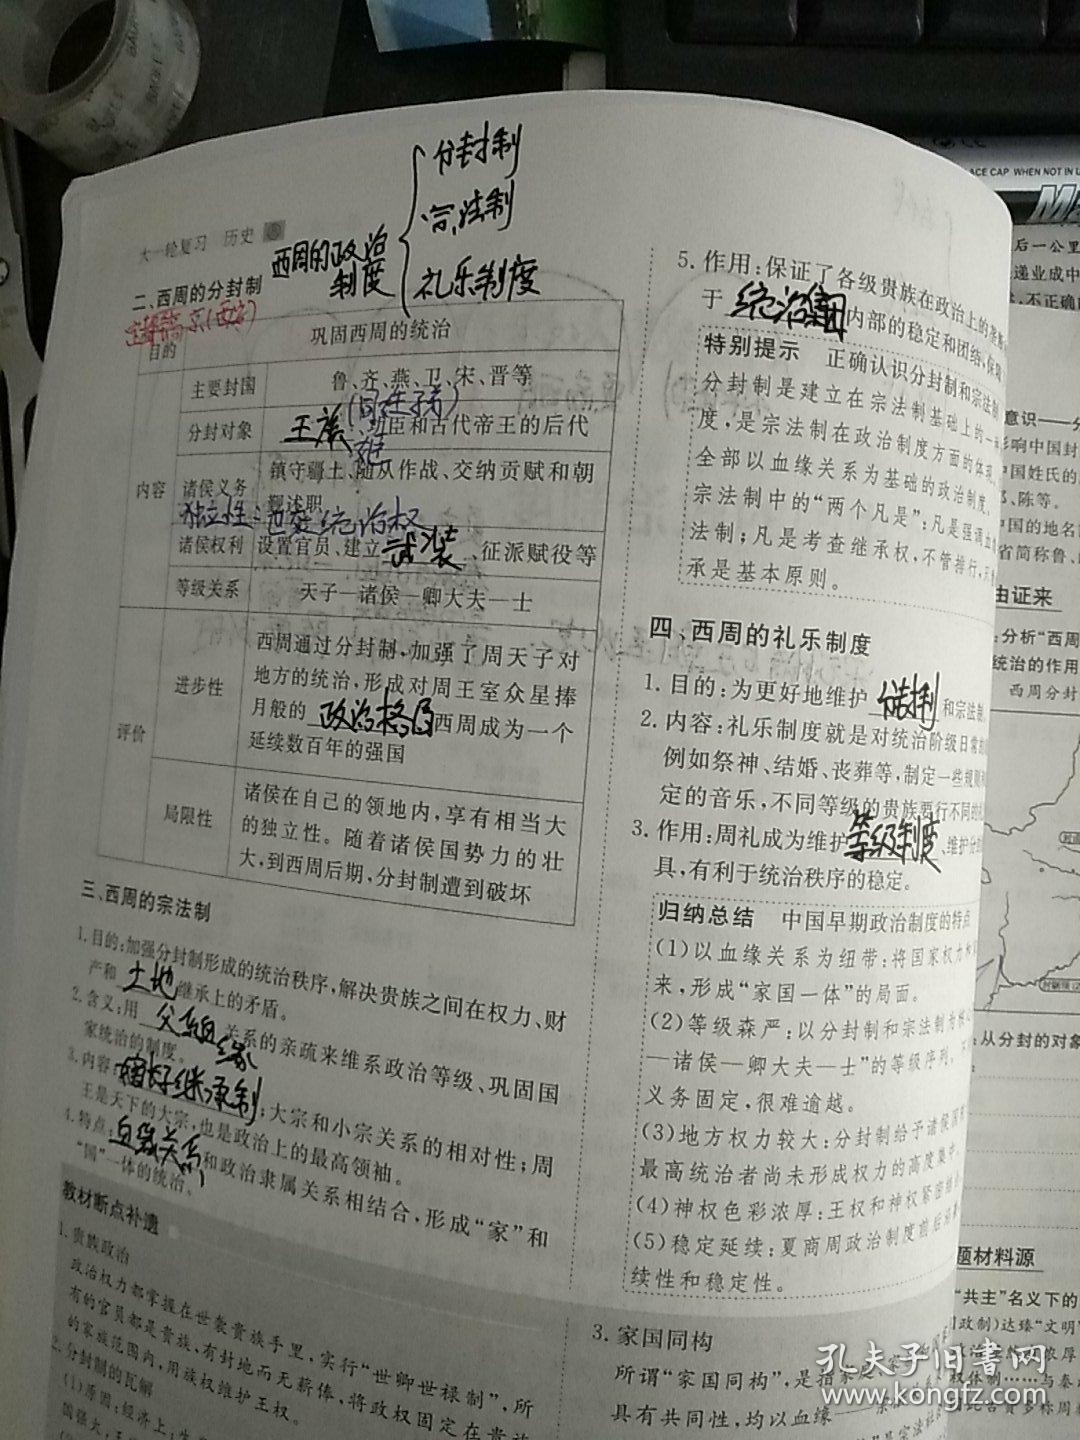 大一轮复习 历史
西周的政治制度
分封制
宗法制
礼乐制度
二、西周的分封制
目的
巩固西周的统治
内容
主要封国
鲁、齐、燕、卫、宋、晋等
(同姓子弟)
分封对象
王族、功臣和古代帝王的后代
姬
诸侯义务
镇守疆土、随从作战、交纳贡赋和朝
觐述职
独立性：世袭统治权
诸侯权利
设置官员、建立武装、征派赋役等
等级关系
天子—诸侯—卿大夫—士
评价
进步性
西周通过分封制,加强了周天子对
地方的统治,形成对周王室众星捧
月般的政治格局西周成为一个
延续数百年的强国
局限性
诸侯在自己的领地内,享有相当大
的独立性。随着诸侯国势力的壮
大,到西周后期,分封制遭到破坏
三、西周的宗法制
1.目的:加强分封制形成的统治秩序,解决贵族之间在权力、财
产和土地继承上的矛盾。
2.含义:用父系血缘关系的亲疏来维系政治等级、巩固国
家统治的制度。
3.内容:嫡长子继承制;大宗和小宗关系的相对性;周
王是天下的大宗,也是政治上的最高领袖。
4.特点:血缘关系和政治隶属关系相结合,形成“家”和
“国”一体的统治。
教材断点补遗
1.贵族政治
政治权力都掌握在世袭贵族手里,实行“世卿世禄制”,所
有的官员都是贵族,有封地而无薪俸,将政权固定在贵族
的家族范围内,用族权维护王权。
2.分封制的瓦解
(1)原因:经济上:
国强大,
5.作用:保证了各级贵族在政治上的垄断
于统治集团内部的稳定和团结,保障
特别提示 正确认识分封制和宗法制
分封制是建立在宗法制基础上的一
度,是宗法制在政治制度方面的体现,
全部以血缘关系为基础的政治制度。
宗法制中的“两个凡是”:凡是强调血
法制;凡是考查继承权,不管排行,
承是基本原则。
四、西周的礼乐制度
1.目的:为更好地维护分封制和宗法制。
2.内容:礼乐制度就是对统治阶级日常
例如祭神、结婚、丧葬等,制定一些规则
定的音乐,不同等级的贵族要行不同的
3.作用:周礼成为维护等级制度、维护分
具,有利于统治秩序的稳定。
归纳总结 中国早期政治制度的特点
(1)以血缘关系为纽带:将国家权力和
来,形成“家国一体”的局面。
(2)等级森严:以分封制和宗法制为核心
—诸侯—卿大夫—士”的等级序列,
义务固定,很难逾越。
(3)地方权力较大:分封制给予诸侯国
最高统治者尚未形成权力的高度集中。
(4)神权色彩浓厚:王权和神权紧密
(5)稳定延续:夏商周政治制度前后沿
续性和稳定性。
3.家国同构
所谓“家国同构”,是指
具有共同性,均以血缘
后一公里
递业成中
,不正确
意识——
影响中国封
中国姓氏的
、陈等。
中国的地名
省简称鲁、
由证来
:分析“西周
统治的作用
西周分封
:从分封的对象
题材料源
“共主”名义下的
政制)达臻“文明”
ACE CAP WHEN NOT IN U
孔夫子旧书网
www.kongfz.com